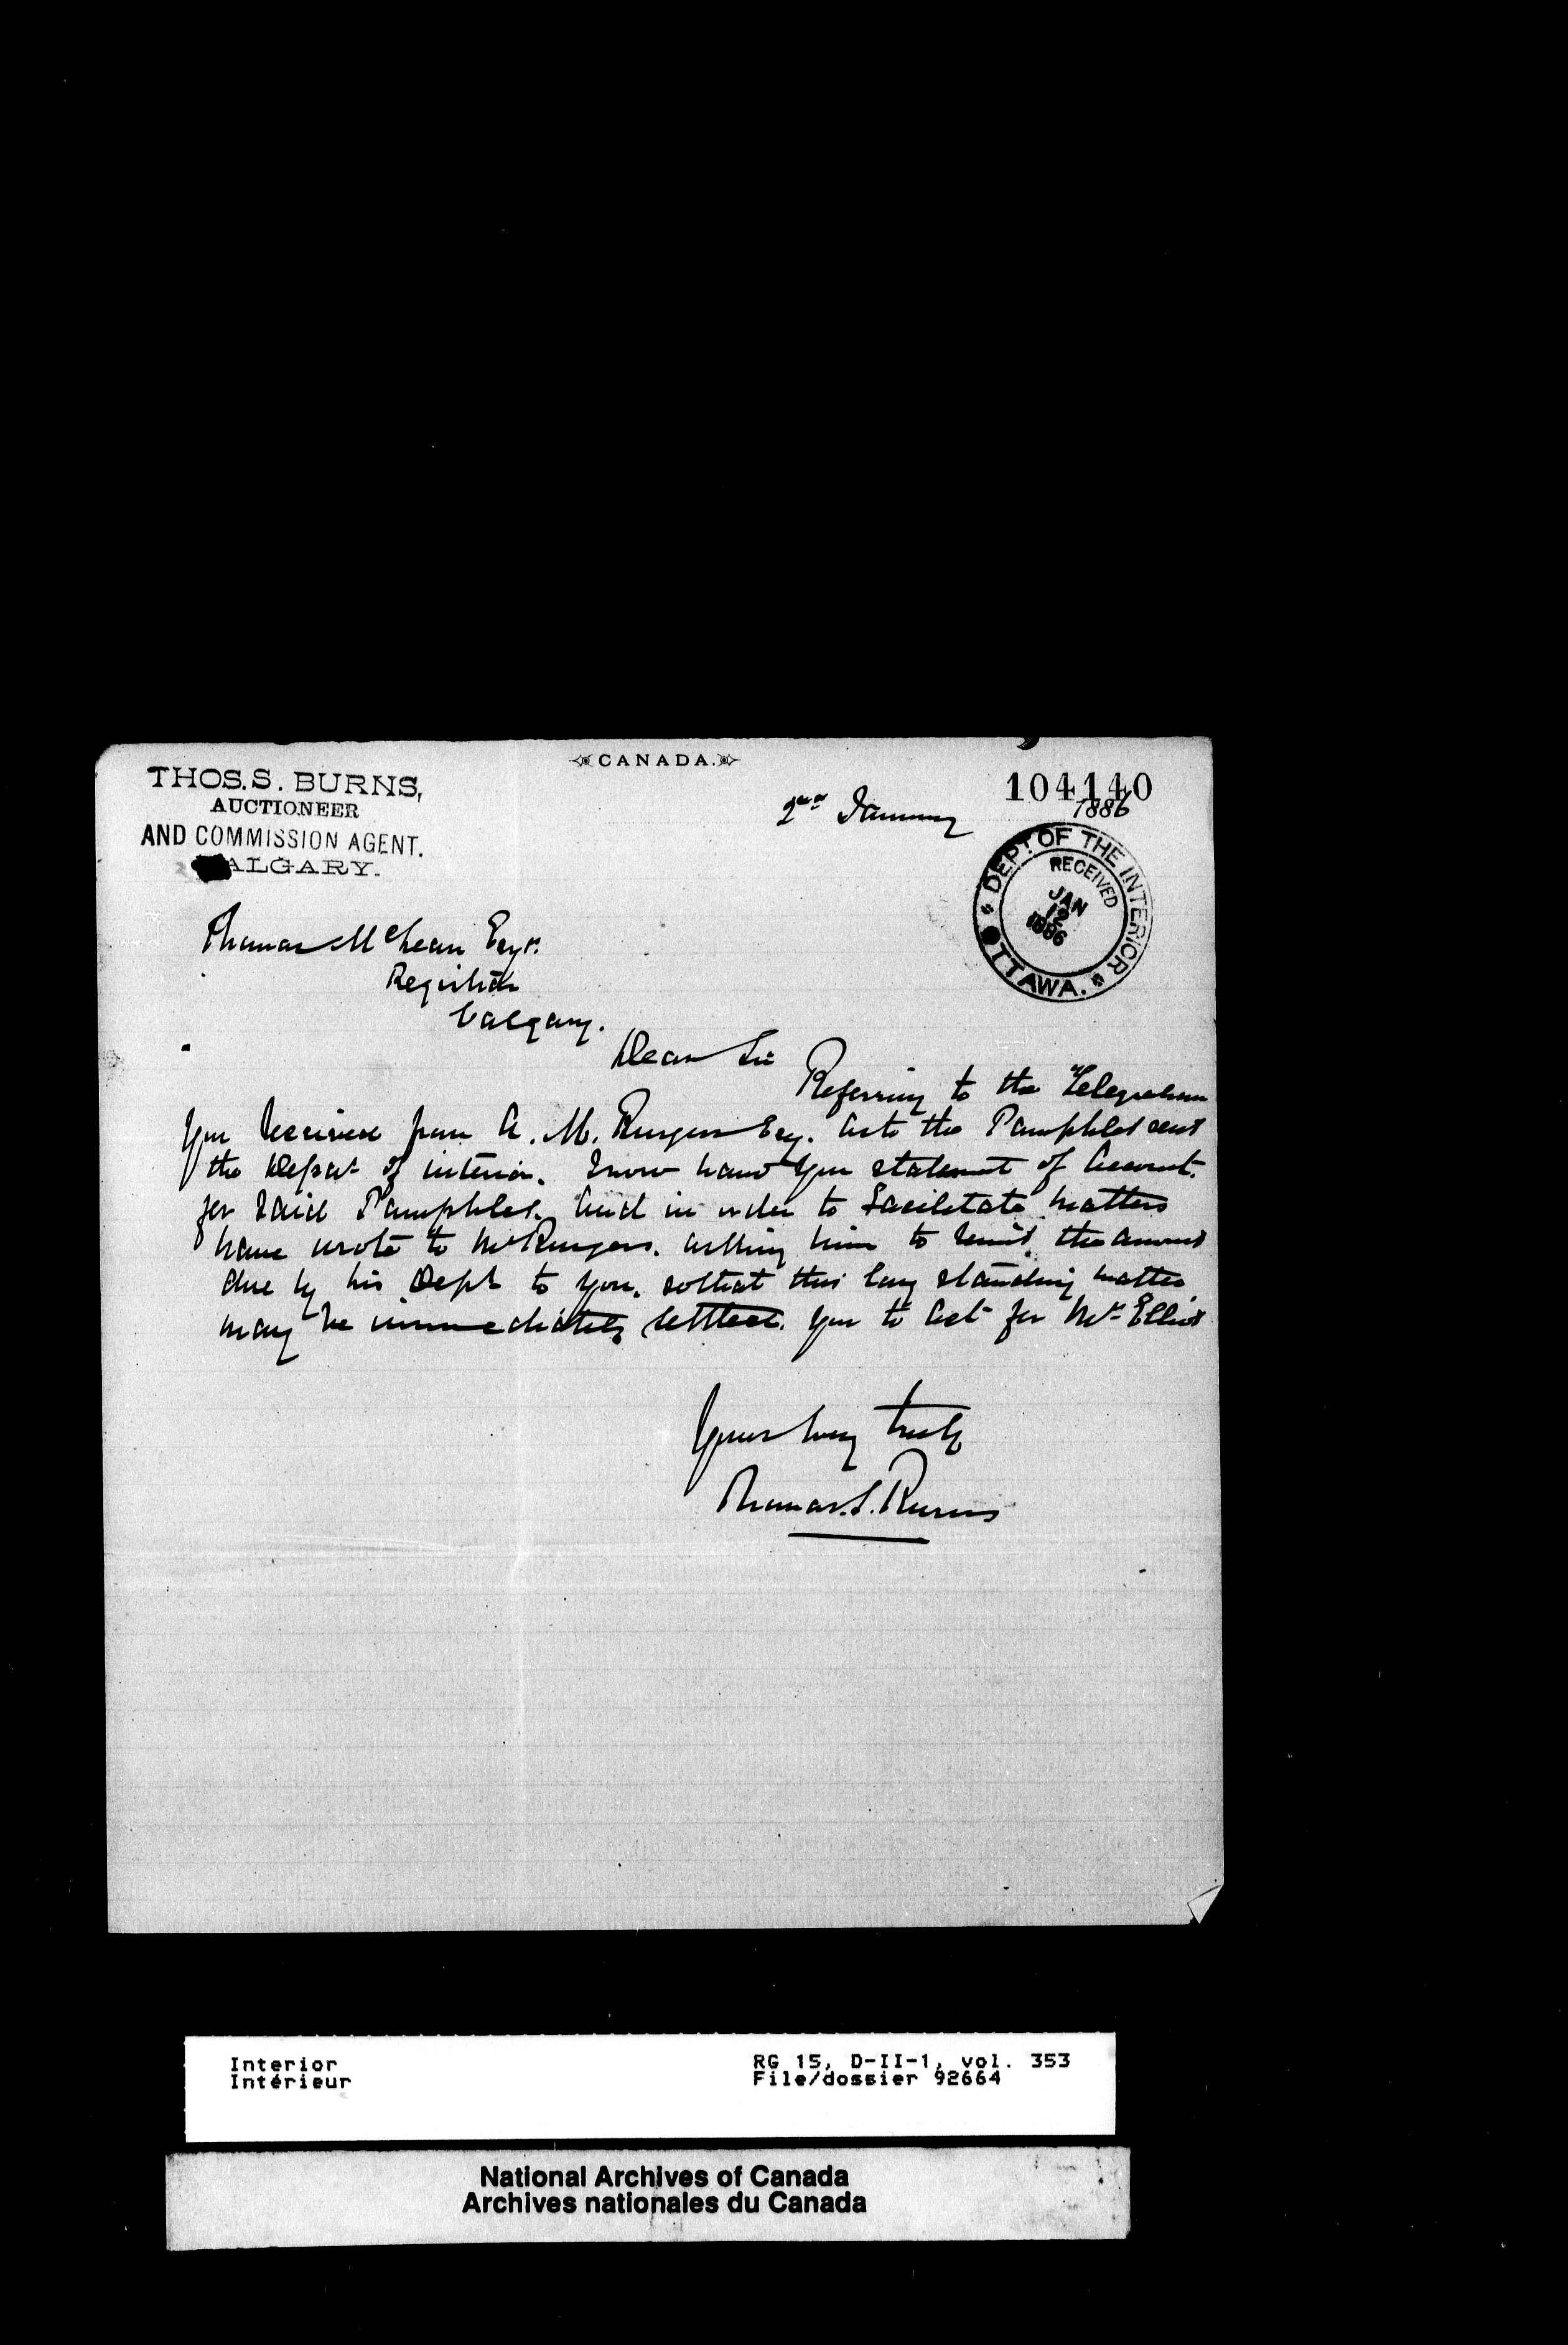 CANADA.
THOS. S. BURNS,
AUCTIONEER
AND COMMISSION AGENT.
CALGARY.
104140
2nd January 1886
DEPT. OF THE INTERIOR
RECEIVED
JAN
12
1886
OTTAWA.
Thomas McLean Esqr.
Registrar
Calgary.
Dear Sir
Referring to the Telegraham
You Received from A. M. Burgess Esq. as to the Pamphlet sent
the Depart of interior. I now hand you statement of Account.
for said Pamphlet. And in order to facilitate matters
have wrote to Mr Burgess. asking him to remit the amount
due by his Dept to you. so that this long standing matter
may be immediately settled. you to act for Mr Elliot
Yours very truly
Thomas. S. Burns
Interior
Intérieur
RG 15, D-II-1, vol. 353
File/dossier 92664
National Archives of Canada
Archives nationales du Canada